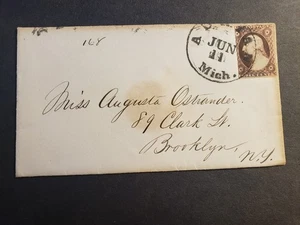 168
JUN
11
Mich.
Miss Augusta Ostrander.
89 Clark St.
Brooklyn,
N.Y.